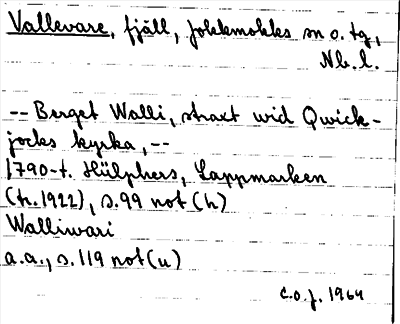 Vallevare, fjäll, Jokkmokks sn o. tg,
Nb. l.
-- Berget Walli, straxt wid Qwick-
jocks kyrka, --
1790-t. Hülphers, Lappmarken
(tr. 1922), s. 99 not (h)
Walliwari
a.a., s. 119 not (u)
C.O.J. 1964